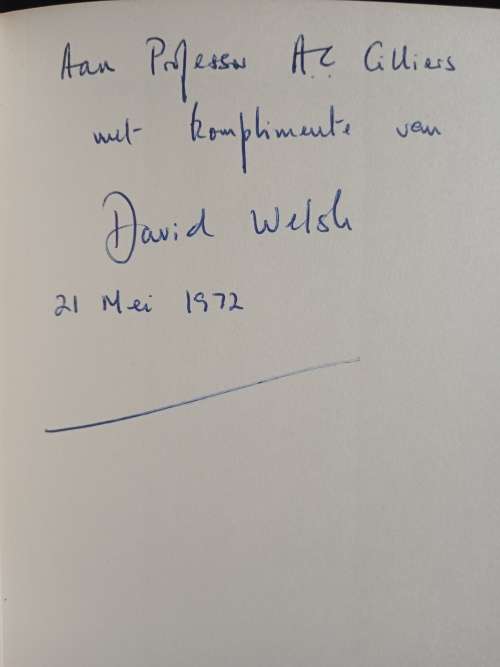 Aan Professor A.C. Cilliers
met komplimente van
David Welsh
21 Mei 1972